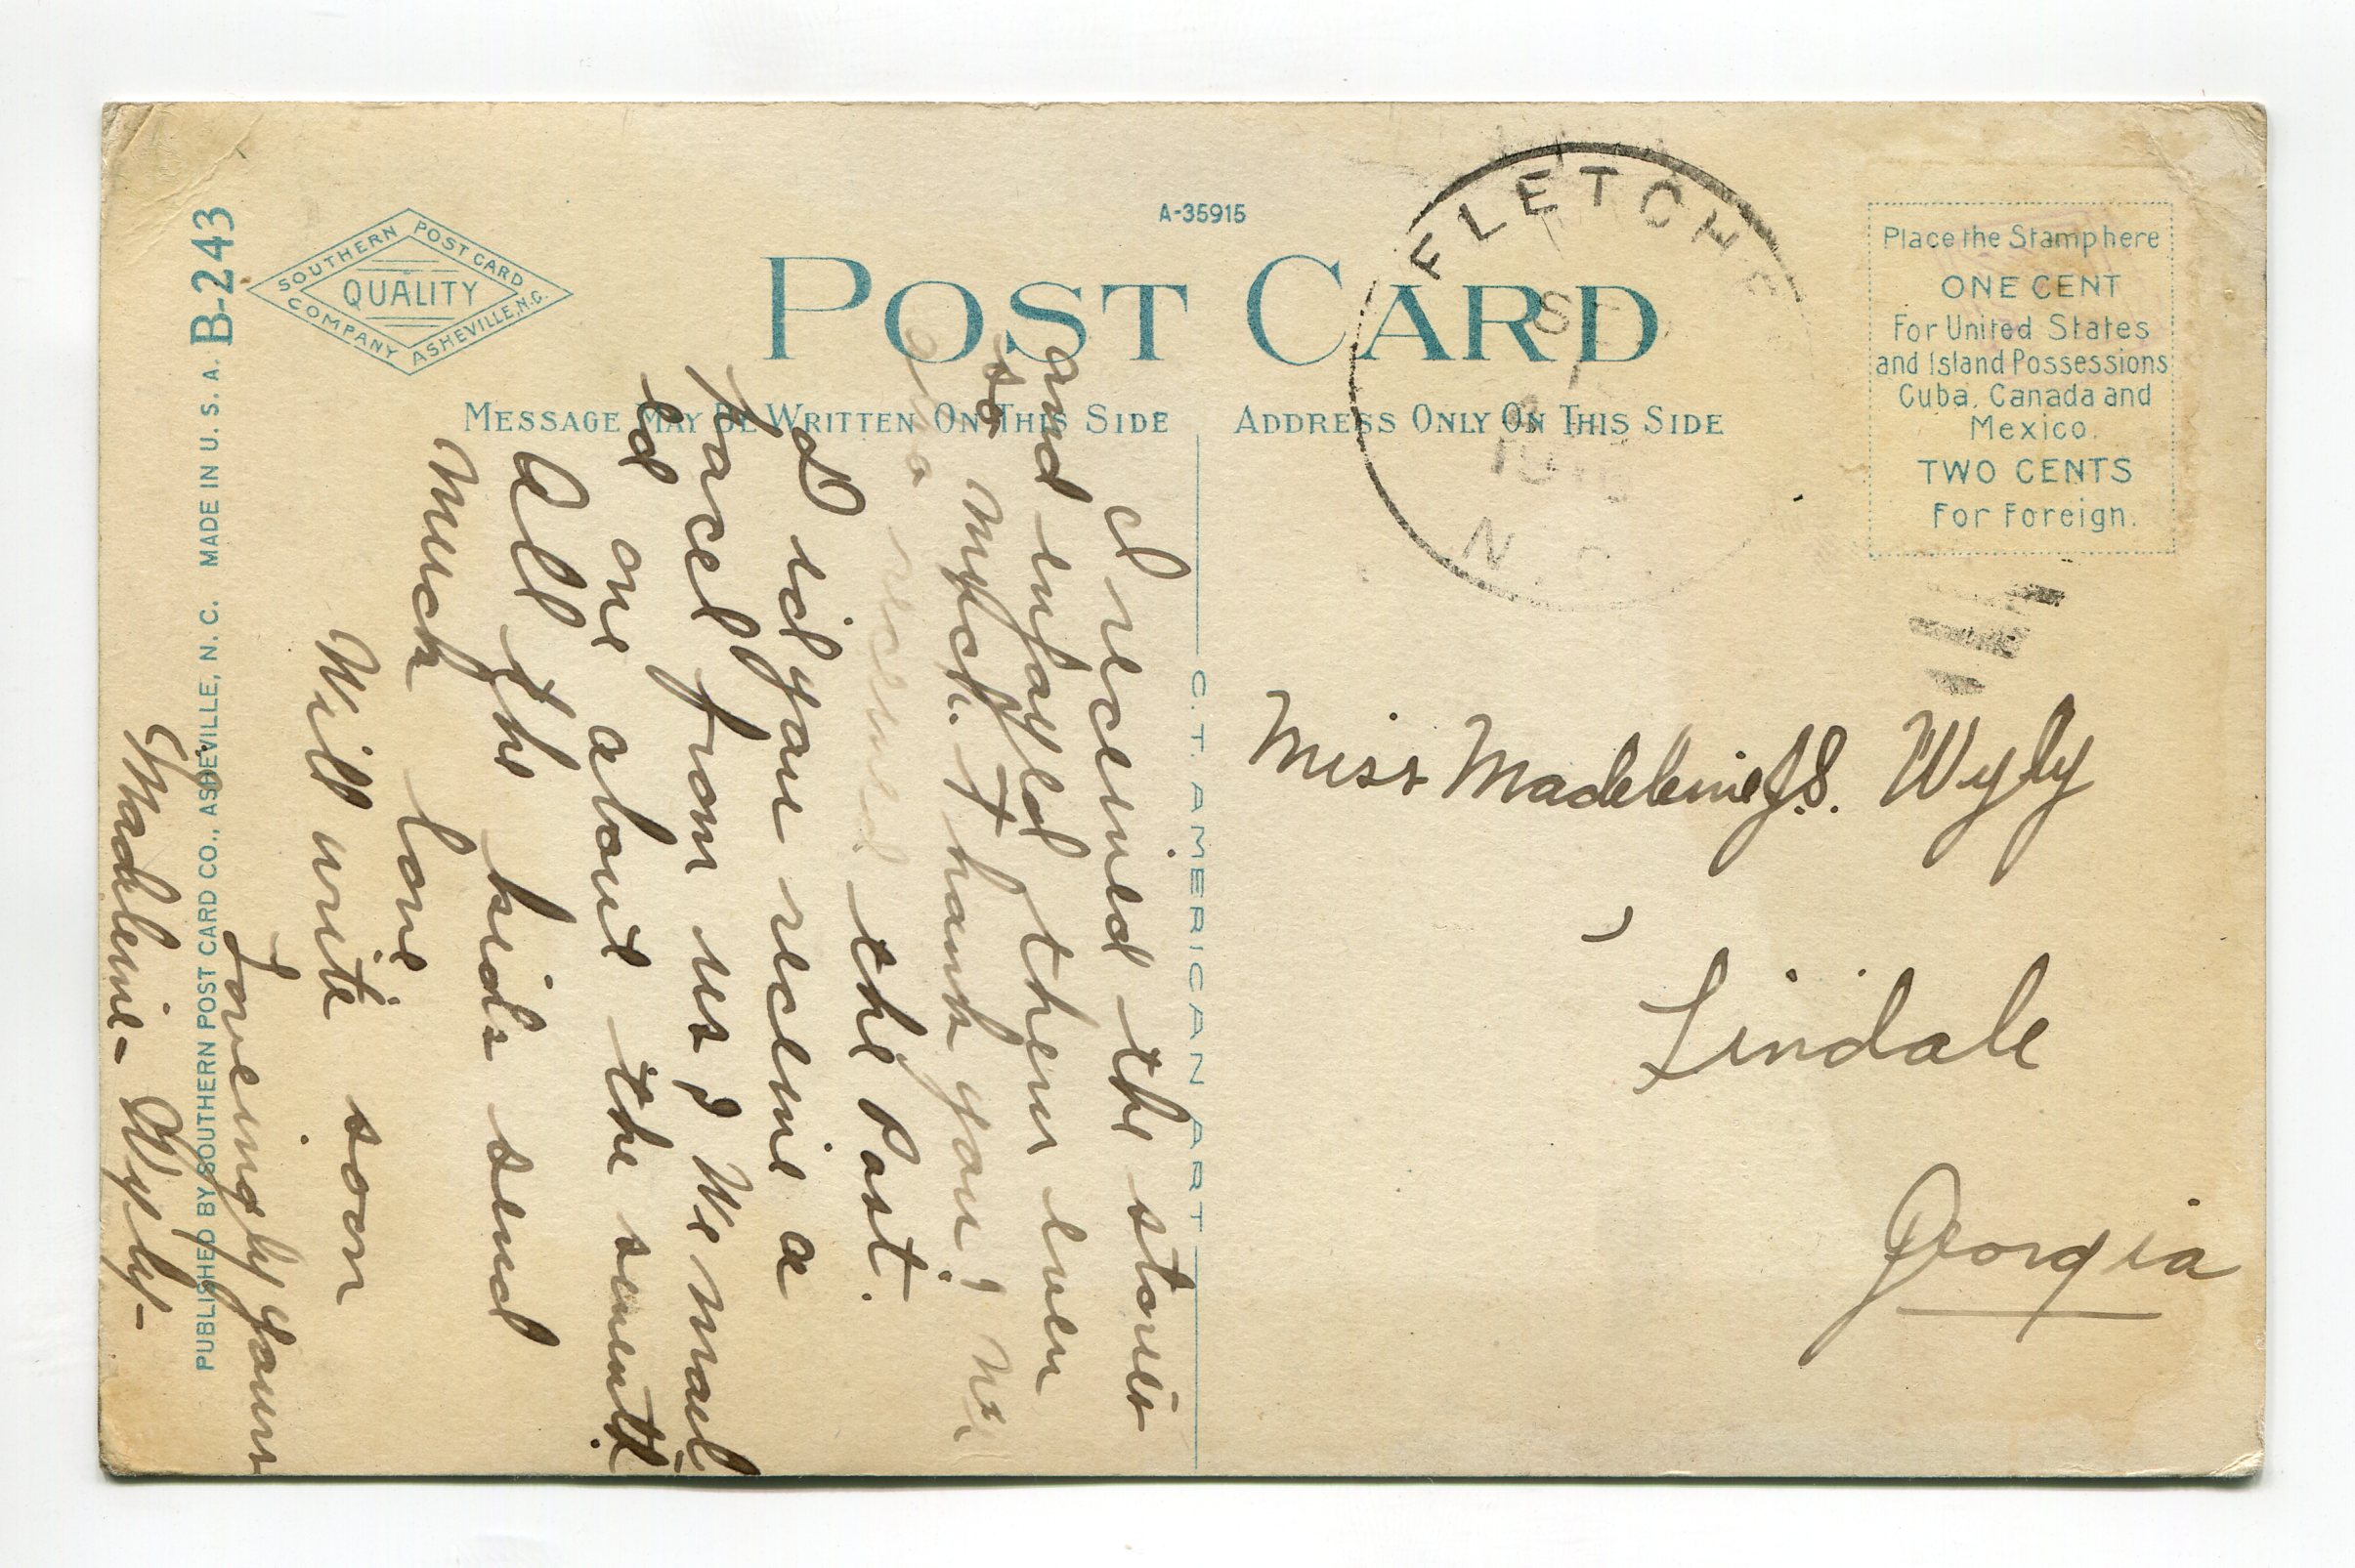 B-243
SOUTHERN POST CARD
QUALITY
COMPANY ASHEVILLE, N.C.
A-35915
POST CARD
MESSAGE MAY BE WRITTEN ON THIS SIDE
ADDRESS ONLY ON THIS SIDE
FLETCH
N.C.
Place the Stamp here
ONE CENT
For United States
and Island Possessions
Cuba, Canada and
Mexico.
TWO CENTS
For Foreign.
I received the stories
and enjoyed them ever
so much. Thank you; We
also received the Post.
I did you recieve a
parcel from us, We mail
ed one about the seventh
All the kids send
Much love
Will write soon
Lovingly yours
Madleine- Wyly-
Miss Madeleine J.S. Wyly
Lindale
Georgia
C.T. AMERICAN ART
PUBLISHED BY SOUTHERN POST CARD CO., ASHEVILLE, N. C. MADE IN U. S. A.